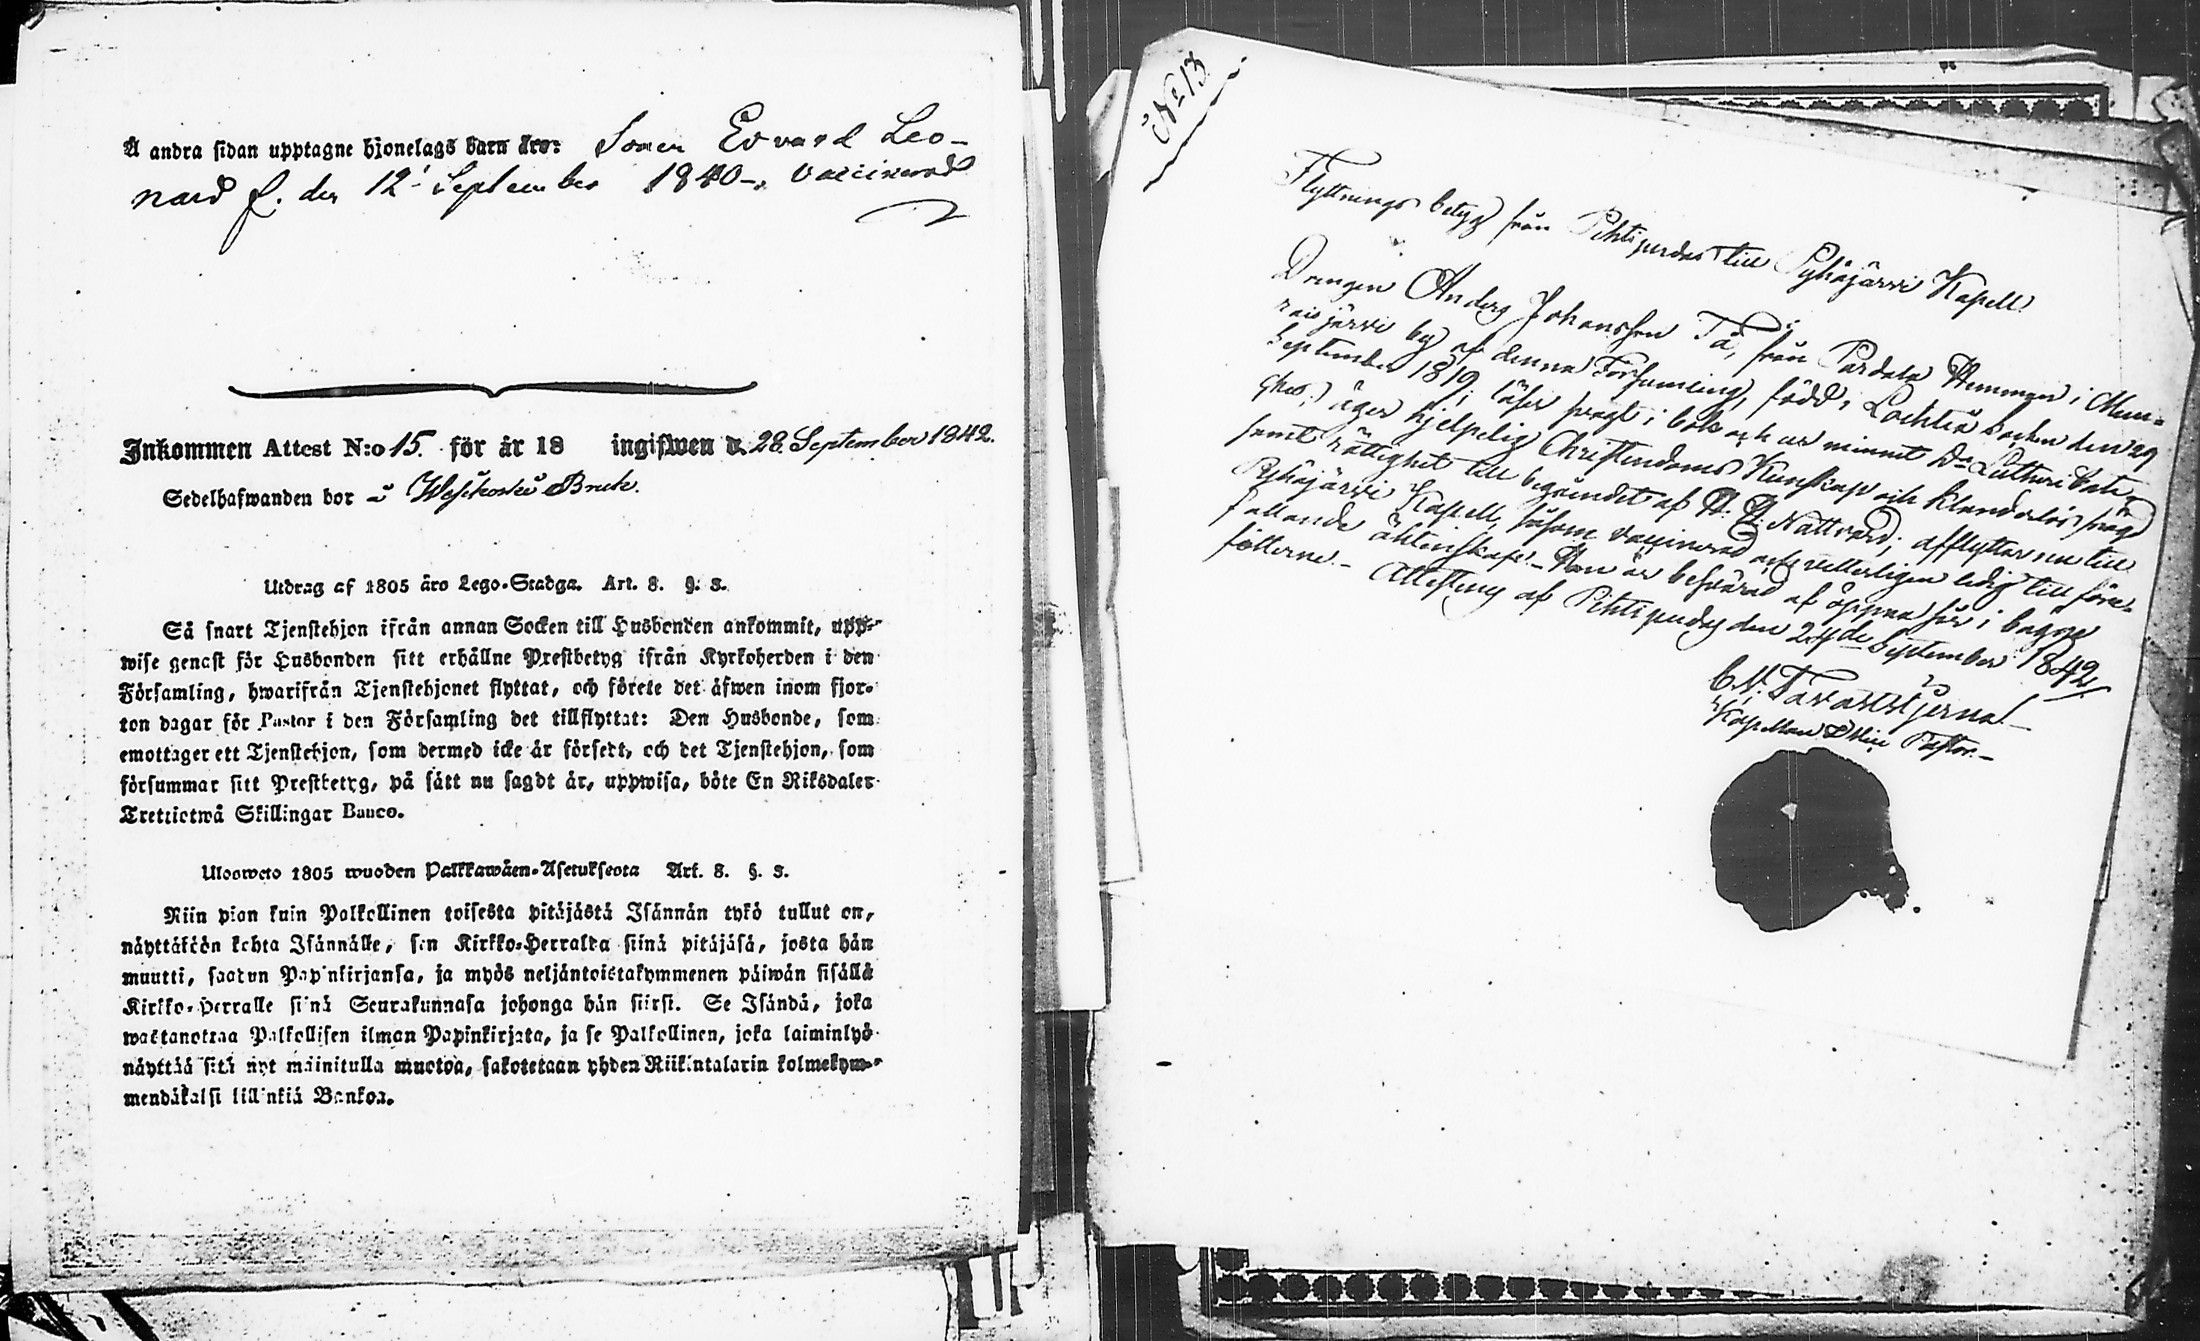 Å andra sidan upptagne hjonelags barn äro: Sonen Edvard Leo-
nard f. den 12 September 1840–, vaccinerad
Inkommen Attest N:o 15. för år 18 ingifwen d. 28 September 1842.
Sedelhafwanden bor å Wesikoski Bruk.
Utdrag af 1805 åro Lego-Stadga. Art. 8. §. 3.
Så snart Tjenstehjon ifrån annan Socken till Husbonden ankommit, upp-
wise genast för Husbonden sitt erhållne Prestbetyg ifrån Kyrkoherden i den
Församling, hwarifrån Tjenstehjonet flyttat, och förete det äfwen inom fjor-
ton dagar för Pastor i den Församling det tillflyttat: Den Husbonde, som
emottager ett Tjenstehjon, som dermed icke är försedt, och det Tjenstehjon, som
försummar sitt Prestbetyg, på sätt nu sagdt är, uppwisa, böte En Riksdaler
Trettiotwå Skillingar Banco.
Ulosweto 1805 wuoden Palkkawäen-Asetuksesta Art. 8. §. 3.
Niin pian kuin Palkollinen toisesta pitäjästä Isännän tykö tullut on,
näyttäköön kohta Isännälle, sen Kirkko-Herralta siinä pitäjäsä, josta hän
muutti, saatun Papinkirjansa, ja myös neljäntoistakymmenen päiwän sisällä
Kirkko-Herralle siinä Seurakunnasa johonga hän siirsi. Se Isändä, joka
wastanottaa Palkollisen ilman Papinkirjata, ja se Palkollinen, joka laiminlyö
näyttää sitä nyt mainitulla muotoa, sakotetaan yhden Riikintalarin kolmekym-
mendäkaksi killinkiä Bankoa.
N:o 13
Flyttnings betyg från Pihtipudas till Pyhäjärvi Kapell
Drengen Anders Johansson Tå, från Pardala Hemman i Mu-
rasjärvi by af denna Församling, född i Lochteå Socken den 29
September 1819; läser svagt i bok och ur minnet D:r Lutheri Cate-
ches, äger hjelpelig Christendoms Kunskap och klanderlös frägd
samt rättighet till begåendet af H. H. Nattvard; afflyttar nu till
Pyhäjärvi Kapell, såsom vaccinerad och vetterligen ledig till före-
fallande äktenskap. – Han är besvärad af öppna sår i begge
fötterne. – Attesteras af Pihtipudas den 24de September 1842
C. N. Tavaststjerna
Kapellan & Vice Pastor. –